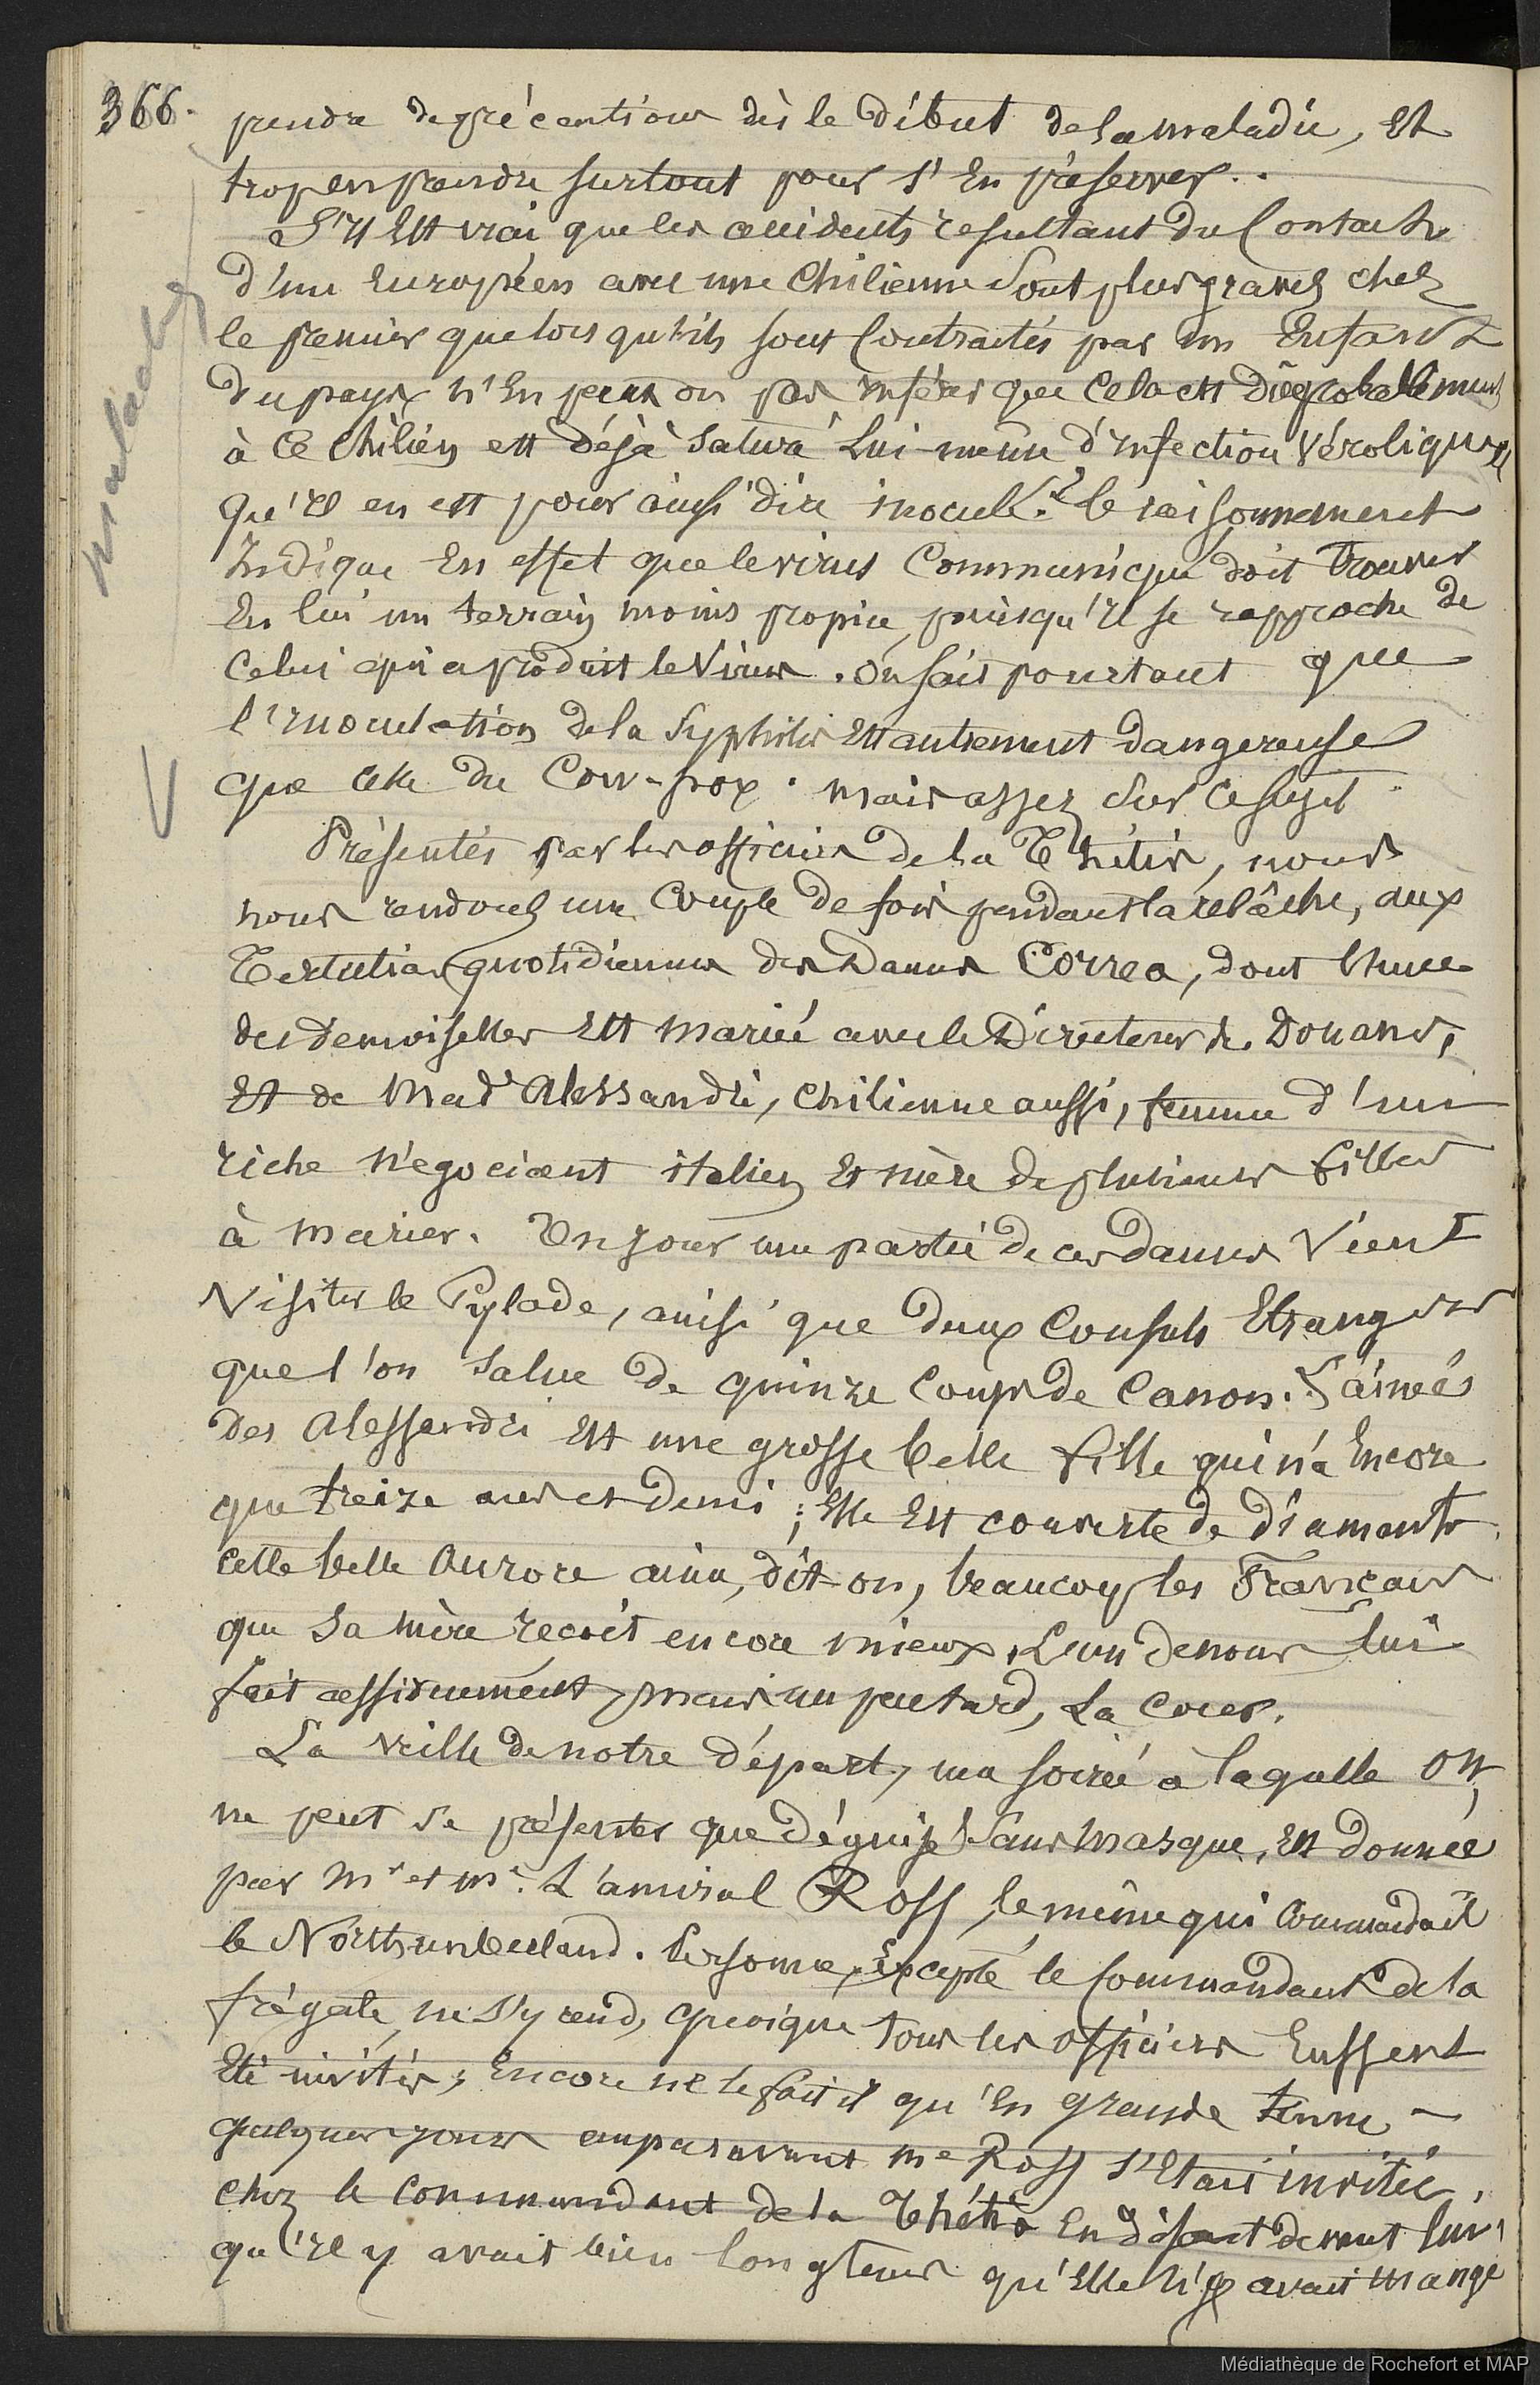 366.
prendre de précautions dès le début de la maladie, et
trop en prendre surtout pour s'en préserver..
S'il est vrai que les accidents resultant du Contact
d'un Européen avec une Chilienne sont plus graves chez
le premier que lors qu'ils sont Contractés par un Enfant
du pays, n'En peut on pas inférer que cela est dû probablement
à ce Chilien est déjà saturé Lui-même d'infection Vérolique,
qu'il en est pour ainsi dire inoculé ? le raisonnement
Indique En effet que le virus Communiqué doit trouver
En lui un terrain moins propice, puisqu'il se rapproche de
Celui qui a produit le Virus. On sait pourtant que
l'inoculation de la Syphilis Est autrement dangereuse
que celle du Cow-pox. mais assez sur ce sujet.
Présentés par les officiers de la Thétis, nous
nous rendons une couple de fois pendant la relâche, aux
Tertulias quotidiennes des Dames Correa, dont l'une
des demoiselles Est mariée avec le Directeur de Douanes,
Et de Mad.e Alessandri, Chilienne aussi, femme d'un
riche négociant italien Et mère de plusieurs filles
à marier. Un jour une partie de ces dames Vient
Visiter le Pylade, ainsi que deux Consuls Etrangers
que l'on salue de quinze Coups de Canon. L'ainée
des Alessandri Est une grosse belle fille qui n'a Encore
que treize ans et demi ; Elle Est couverte de diamants.
cette belle Aurore aime, dit-on, beaucoup les Francais
que sa mère recoit encore mieux, L'un de nous lui
fait assiduement, mais un peu tard, La cour.
La veille de notre départ, une soirée à laquelle on
ne peut se présenter que déguisé Sans masque, est donnée
par Mr et Me. L'amiral Ross, le même qui Commandait
le Northumberland. Personne, Excepté le Commandant de la
frégate, ne s'y rend, quoique tous les officiers Eussent
Eté invités ; Encore ne le fait il qu'En grande tenue. -
quelques jours auparavant Me Ross s'Etait invitée,
chez le Commandant de la Thétis En disant devant lui,
qu'il y avait bien longtems qu'Elle n'y avait mangé
maladies
Médiathèque de Rochefort et MAP